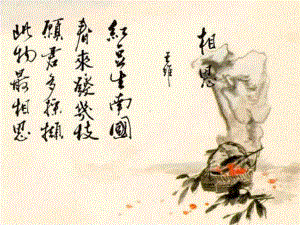 相思
王维
紅豆生南國
春來發幾枝
願君多採擷
此物最相思